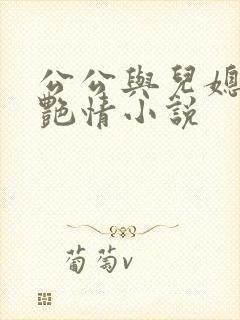 公公與兒媳
艷情小說
葡萄v